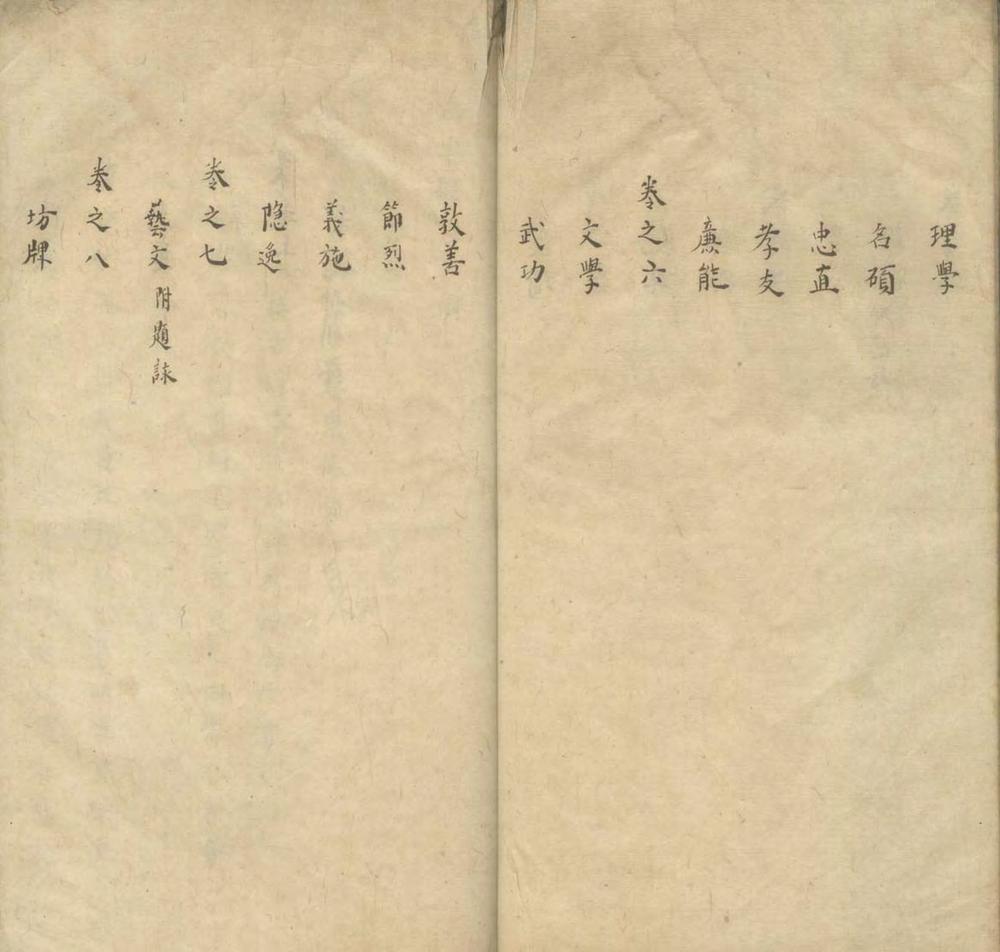 理學
名碩
忠直
孝友
廉能
卷之六
文學
武功
敦善
節烈
義施
隱逸
卷之七
藝文附題詠
卷之八
坊牌